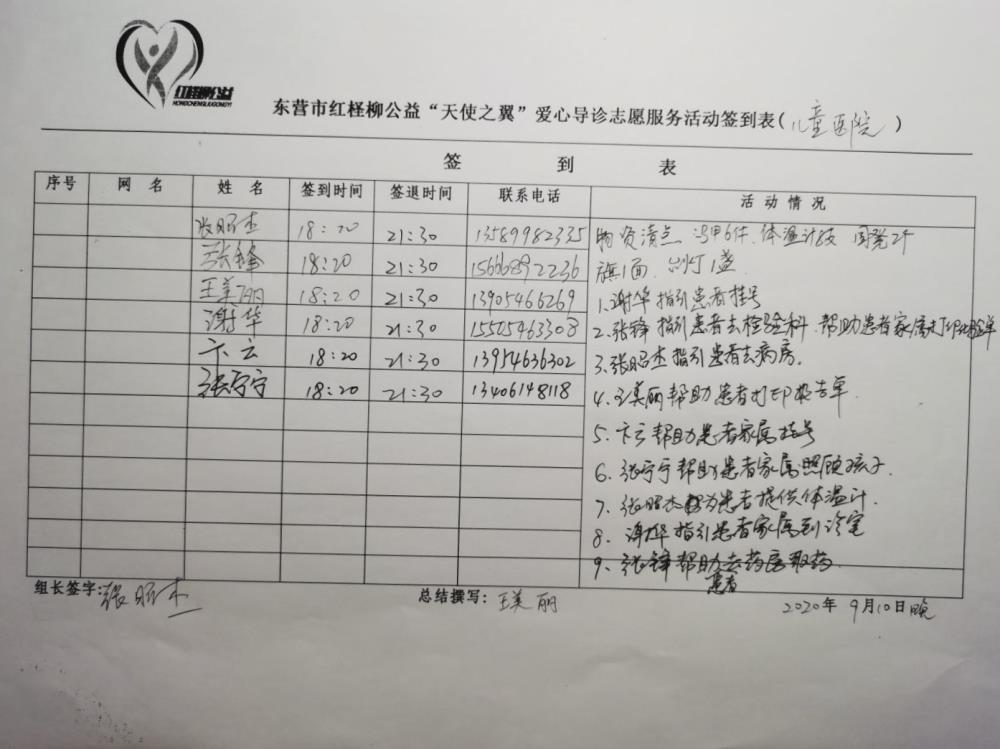 红柽柳公益
HONGCHENGLIUGONGYI
东营市红柽柳公益“天使之翼”爱心导诊志愿服务活动签到表(儿童医院)
签 到 表
序号 网 名 姓 名 签到时间 签退时间 联系电话 活 动 情 况
张昭杰 18:20 21:30 13589982335 物资清点 马甲6件、体温计2支
张锋 18:20 21:30 15666892236 旗1面、台灯1盏
王美丽 18:20 21:30 13905466269 1.谢华指引患者挂号
谢华 18:20 21:30 15505463308 2.张锋指引患者去检验科、帮助患者家属打印化验单
卞云 18:20 21:30 13954636302 3.张昭杰指引患者去病房。
张宁宁 18:20 21:30 13406148118 4.王美丽帮助患者打印报告单.
5.卞云帮助患者家属挂号
6.张宁宁帮助患者家属照顾孩子.
7.张昭杰为患者提供体温计.
8.谢华指引患者家属到诊室
9.张锋帮助患者去药房取药
组长签字:张昭杰 总结撰写:王美丽 2020年9月10日晚